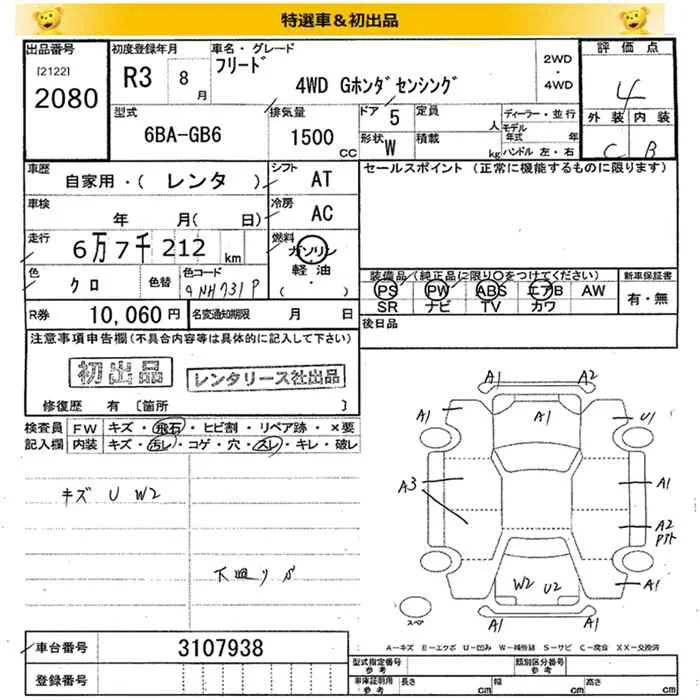 特選車&初出品
出品番号 初度登録年月 車名・グレード 評価点
[2122] フリード 2WD
2080 R3 8月 4WD Gホンダセンシング ・4WD 4
型式 排気量 ドア 5 定員 人 ディーラー・並行 外装 内装
6BA-GB6 1500CC 形状 W 積載 kg モデル年式 年 C B
ハンドル 左・右
車歴 自家用・(レンタ) シフト AT セールスポイント (正常に機能するものに限ります)
車検 年 月( 日) 冷房 AC
走行 6万7千212km 燃料 ガソリン・軽油・( )
色 クロ 色替 色コード 装備品(純正品に限り○をつけてください) 新車保証書
PS PW ABS エアB AW 有・無
SR ナビ TV カワ
R券 10,060円 名変通知期限 月 日 後日品
注意事項申告欄(不具合内容等は具体的に記入して下さい)
初出品 レンタリース社出品
修復歴 有 [箇所 ]
検査員 FW キズ・飛石・ヒビ割・リペア跡・×要
記入欄 内装 キズ・汚レ・コゲ・穴・スレ・キレ・破レ
キズ U W2
下廻り S
A1 A2
A1 A1 U1
A3 A1
A2
W2 U2 A1
A1 A1
スペア
A-キズ E-エクボ U-凹み W-補修跡 S-サビ C-腐食 XX-交換済
車台番号 3107938 型式指定番号 参考 類別区分番号 参考
登録番号 車庫証明用 参考 長さ cm 幅 cm 高さ cm